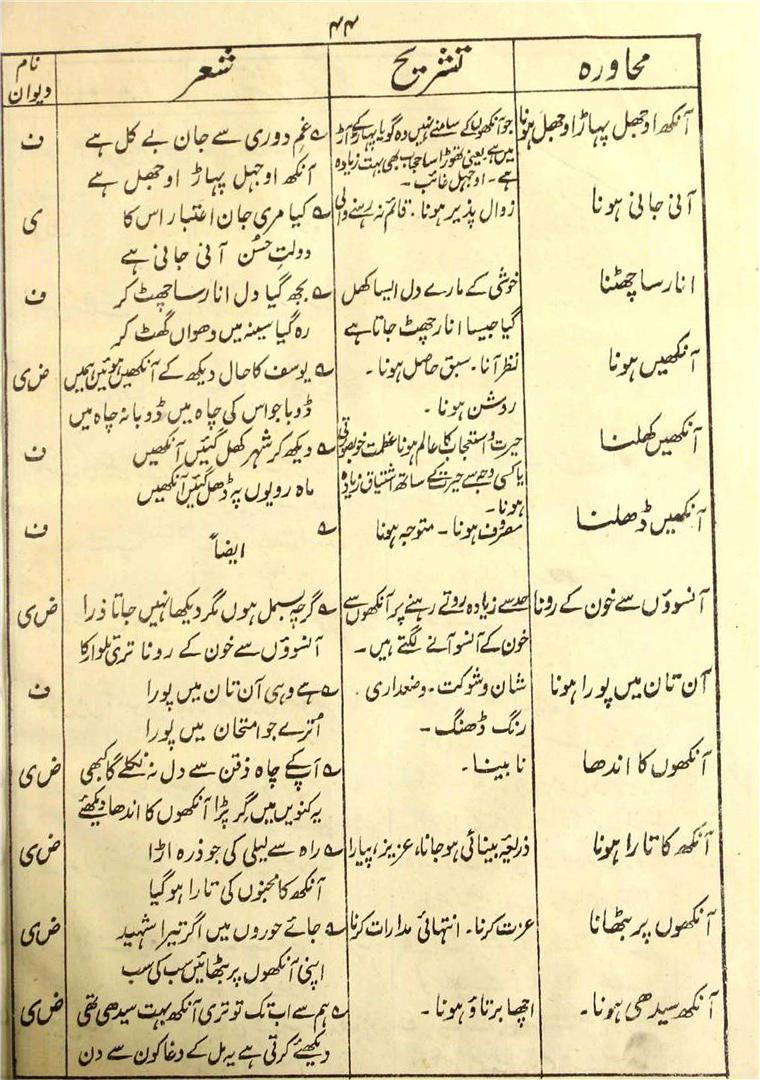 ۴۴
محاورہ | تشریح | شعر | نام دیوان
آنکھ اوجھل پہاڑ اوجھل ہونا | جو آنکھوں کے سامنے نہیں وہ گویا پہاڑ کے آڑ | ؎ غمِ دوری سے جان بے کل ہے | ف
میں ہے یعنی تھوڑا سا حجاب بھی بہت زیادہ | آنکھ اوجھل پہاڑ اوجھل ہے
ہے۔ اوجھل غائب۔
آنی جانی ہونا | زوال پذیر ہونا۔ قائم نہ رہنے والی | ؎ کیا مری جان اعتبار اس کا | ی
دولتِ حسُن آنی جانی ہے
انار سا چھٹنا | خوشی کے مارے دل ایسا کھل | ؎ بجھ گیا دل انار سا چھٹ کر | ف
گیا جیسا انار چھٹ جاتا ہے | رہ گیا سینہ میں دھواں گھٹ کر
آنکھیں ہونا | نظر آنا۔ سبق حاصل ہونا۔ | ؎ یوسف کا حال دیکھ کے آنکھیں ہوئیں ہمیں | ض ی
روشن ہونا۔ | ڈوبا جو اس کی چاہ میں ڈوبا نہ چاہ میں
آنکھیں کھلنا | حیرت و استعجاب کا عالم ہونا عظمت خوبصورتی | ؎ دیکھ کر شہر کھل گئیں آنکھیں | ف
یا کسی وجہ سے حیرت کے ساتھ اشتیاق زیادہ | ماہ رویوں پہ ڈھل گئیں آنکھیں
ہونا۔
آنکھیں ڈھلنا | مصروف ہونا۔ متوجہ ہونا | ؎ | ف
ایضاً
آنسوؤں سے خون کے رونا | حد سے زیادہ روتے رہنے پر آنکھوں سے | ؎ گرچہ بسمل ہوں مگر دیکھا نہیں جاتا ذرا | ض ی
خون کے آنسو آنے لگتے ہیں۔ | آنسوؤں سے خون کے رونا تری تلوار کا
آن تان میں پورا ہونا | شان و شوکت۔ وضعداری۔ | ؎ ہے وہی آن تان میں پورا | ف
رنگ ڈھنگ۔ | اُترے جو امتحان میں پورا
آنکھوں کا اندھا | نابینا۔ | ؎ آپ کے چاہ ذقن سے دل نہ نکلے گا کبھی | ض ی
یہ کنویں میں گر پڑا آنکھوں کا اندھا دیکھئے
آنکھ کا تارا ہونا | ذریعۂ بینائی ہو جانا، عزیز، پیارا | ؎ راہ سے لیلی کی جو ذرہ اڑا | ض ی
آنکھ کا مجنوں کی تارا ہو گیا
آنکھوں پر بٹھانا | عزت کرنا۔ انتہائی مدارات کرنا | ؎ جائے حوروں میں اگر تیرا شہید | ض ی
اپنی آنکھوں پر بٹھائیں سب کی سب
آنکھ سیدھی ہونا۔ | اچھا برتاؤ ہونا۔ | ؎ ہم سے اب تک تو تری آنکھ بہت سیدھی تھی | ض ی
دیکھئے کرتی ہے یہ مل کے دغا کون سے دن